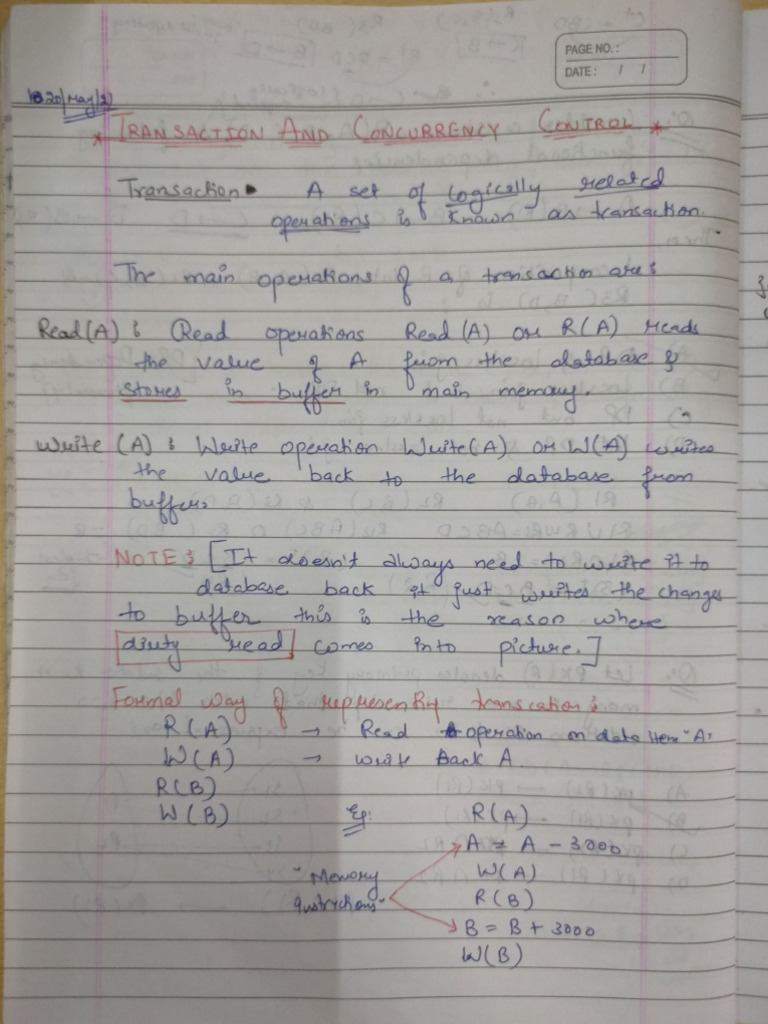 PAGE NO.:
DATE: / /
20/May/21
* TRANSACTION AND CONCURRENCY CONTROL *
Transaction • A set of logically related
operations is known as transaction.
The main operations of a transaction are:
Read(A) : Read operations Read (A) or R(A) reads
the value of A from the database &
stores in buffer in main memory.
Write (A) : Write operation Write(A) or W(A) writes
the value back to the database from
buffer.
NOTE : [It doesn't always need to write it to
database back it just writes the changes
to buffer this is the reason where
dirty read comes into picture.]
Formal way of represently transcation :
R(A) → Read operation on data item "A"
W(A) → write Back A
R(B)
W(B)
Eg: R(A)
A = A - 3000
W(A)
"Memory
R(B)
B = B + 3000
W(B)